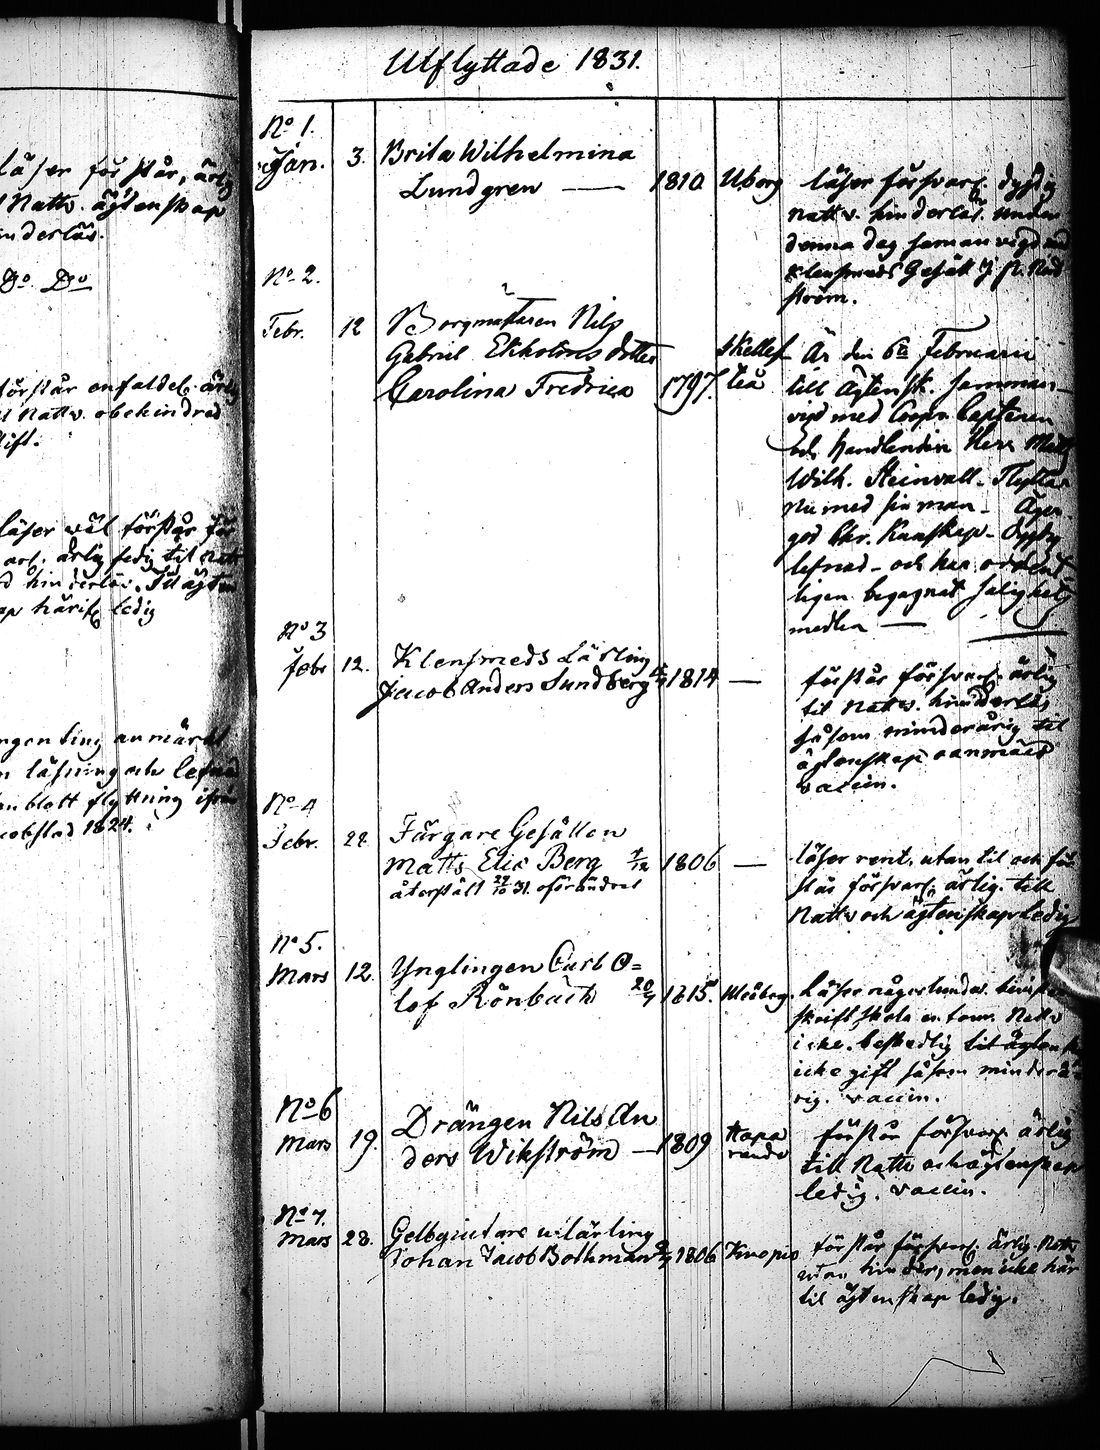 läser förstår, ärlig
Nattv. ägtenskap
hinderlös.
Do. Do
förstår enfaldel. ärlig
Nattv. obehindrad
gift.
läser väl förstår för
ärlig ledig til Natt
hinderlös. Til ägten
härifr. ledig
ingenting anmärkt
läsning och lefnad
blott flyttning ifrån
Jacobstad 1824.
Utflyttade 1831.
No 1.
Jan. 3. Brita Wilhelmina
Lundgren — 1810 Uborg
läser försvarl. dygdig
Nattv. hinderlös. under
denna dag samanvigd med
Klensmeds Gesäll J. P. Nordström.
No 2.
Febr. 12 Borgmästaren Nils
Gabriel Ekholms dotter
Carolina Fredrica 1797. Skelleftea
Är den 6te Februarii
till Ägtensk. samman-
vigd med Coopv. Captenen
och Handlanden Herr Matts
Wilh. Steinvall - Flyttar
nu med sin man - Äger
god Chr. Kunskap - dygdig
lefnad - och har ordent
ligen begagnat salighets
medlen —
No 3
Febr 12. Klensmeds Lärling
Jacob Anders Sundberg 1814 —
förstår försvarl. ärlig
til Nattv. hinderlös
såsom minderårig til
ägtenskap oanmäld
vaccin.
No 4
Febr. 22 Färgare Gesällen
Matts Eric Berg 1806 —
återstält 29/10 31. oförändrat
läser rent. utan til och för
står försvarl. ärlig. till
Nattv och ägtenskap ledig
No 5.
Mars 12. Ynglingen Carl O=
lof Rönbäck 20/7 1815. Uleåborg.
Läser någorlunda.
icke. beskedlig til ägtensk
icke gift såsom minderå
rig. vaccin.
No 6
Mars 19. Drängen Nils An
ders Wikström — 1809 Haparanda
förstår försvarl. ärlig
till Nattv och ägtenskap
ledig. vaccin.
No 7.
Mars 28. Gelbgiutare utlärling
Johan Jacob Bothman 1806 Kuopio
förstår försvarl. ärlig. Nattv
utan hinder, men icke här
til ägtenskap ledig.